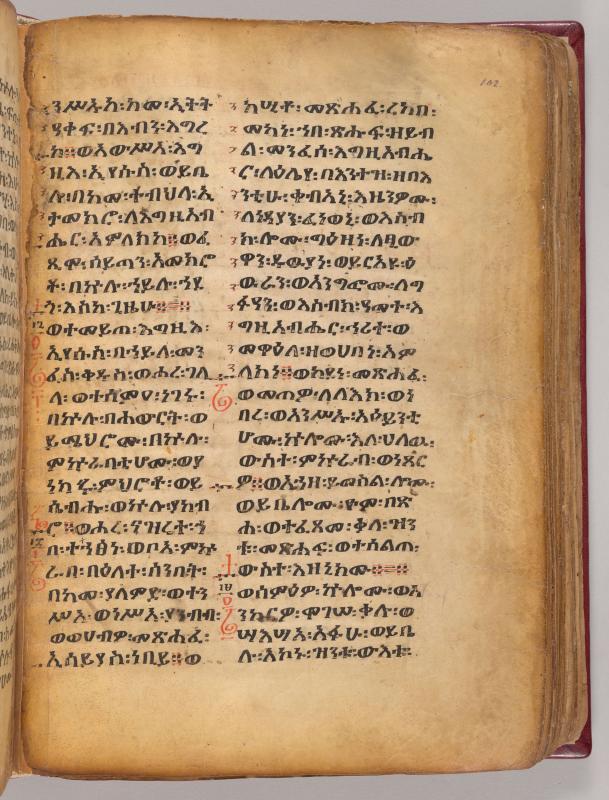 ንሥኡከ፡ከመ፡ኢትት
ዓቀፍ፡በእብን፡እግረ
ከ፡ወአውሥአ፡እግ
ዚእ፡ኢየሱስ፡ወይቤ
ሎ፡በከመ፡ተብህለ፡ኢ
ታመክሮ፡ለእግዚአብ
ሔር፡አምላክከ፡፡ወፈ
ጺሞ፡ሰይጣን፡አመክሮ
ቶ፡በኵሉ፡ኀይሉ፡ኀደ
ጎ፡እስከ፡ጊዜሁ፡፡
ወተመይጠ፡እግዚእ፡
ኢየሱስ፡በኀይለ፡መን
ፈስ፡ቅዱስ፡ወሖረ፡ገሊ
ላ፡ወተሰምዐ፡ነገሩ፡
በኵሉ፡በሐውርት፡ወ
ይሜህሮሙ፡በኵሉ፡
ምኵራባቲሆሙ፡ወያ
ነክሩ፡ምህሮቶ፡ወይ
ሴብሑ፡ወኵሉ፡ያከብ
ሮ፡፡ወሖረ፡ናዝሬተ፡ኀ
በ፡ተሐፅነ፡ወቦአ፡ምኵ
ራበ፡በዕለተ፡ሰንበት፡
በከመ፡ያለምድ፡ወተን
ሥአ፡ወነሥአ፡ያንብብ፡
ወወሀብዎ፡መጽሐፈ፡
ኢሳይያስ፡ነቢይ፡፡ወ
102
ከሢቶ፡መጽሐፈ፡ረከበ፡
መካነ፡ኀበ፡ጽሑፍ፡ዘይብ
ል፡መንፈሰ፡እግዚአብሔ
ር፡ላዕሌየ፡በእንተዝ፡ዘበእ
ንቲሁ፡ቀብአኒ፡እዜንዎሙ፡
ለነዳያን፡ፈነወኒ፡ወእስብ
ክ፡ሎሙ፡ግዕዘነ፡ለፄው
ዋን፡ዕዉያን፡ወይርአዩ፡ዕ
ውራን፡ወእንግሞሙ፡ለግ
ፉዓን፡ወእስብክ፡ዓመተ፡እ
ግዚአብሔር፡ኅሪተ፡ወ
መዋዕለ፡ዘወሀበነ፡አም
ላክነ፡፡ወከደነ፡መጽሐፈ፡
ወመጠዎ፡ለላእክ፡ወነ
በረ፡ወአንሥኡ፡አዕይንቲ
ሆሙ፡ኵሎሙ፡እለ፡ሀለዉ፡
ውስተ፡ምኵራብ፡ወነጸር
ዎ፡፡ወአኀዘ፡ይመስል፡ሎሙ፡
ወይቤሎሙ፡ዮም፡በጽ
ሐ፡ወተፈጸመ፡ቃለ፡ዝን
ቱ፡መጽሐፍ፡ወተሰልጠ፡
ውስተ፡እዘኒክሙ፡፡
ወሰምዕዎ፡ኵሎሙ፡ወአ
ንከርዎ፡ሞገሠ፡ቃሉ፡ወ
ሣእሣአ፡አፉሁ፡ወይቤ
ሉ፡አኮኑ፡ዝንቱ፡ውእቱ፡